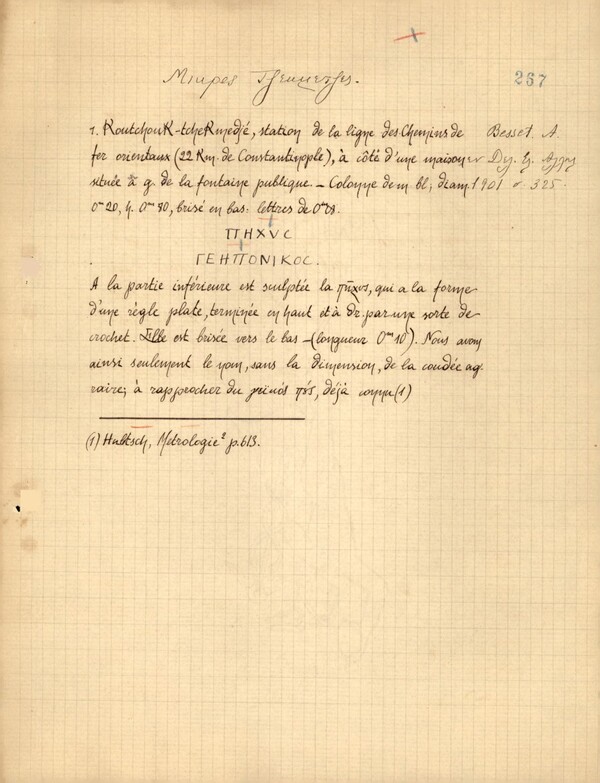 267
1. Koutchouk-tchekmedjé, station de la ligne des Chemins de Besset. A.
fer orientaux (22 Km. de Constantinople), à côté d'une maison
située à g. de la fontaine publique. — Colonne de m. bl; diam. 1901 325.
0m 20, h. 0m 80, brisé en bas: lettres de 0m08.
ΠΗΧΥC
ΓΕΗΠΟΝΙΚΟC.
A la partie inférieure est sculptée la πῆχυς, qui a la forme
d'une règle plate, terminée en haut et à dr. par une sorte de
crochet. Elle est brisée vers le bas — (longueur 0m 10). Nous avons
ainsi seulement le nom, sans la dimension, de la coudée ag
raire; à rapprocher du πούς, déjà connu (1)
(1) Hultsch, Metrologie² p. 613.